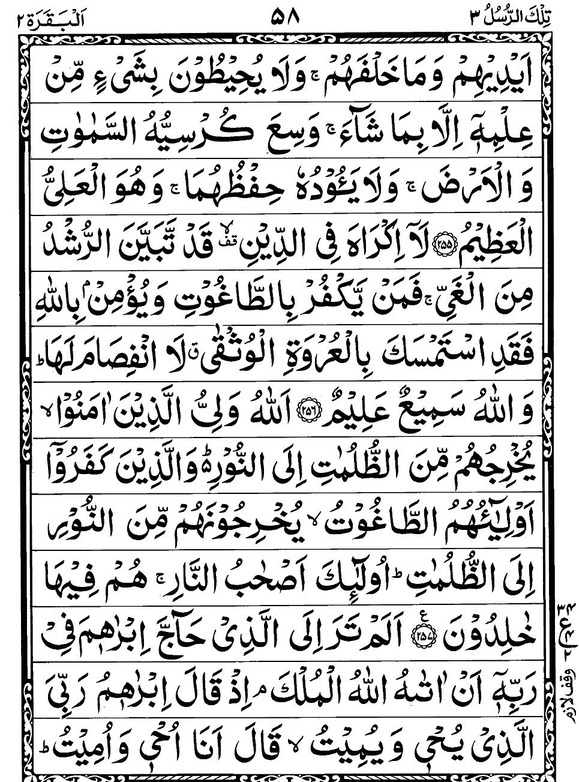 تِلْكَ الرُّسُلُ ٣ ٥٨ اَلْبَقَرَة ٢
اَيْدِيْهِمْ وَمَا خَلْفَهُمْ ۚ وَلَا يُحِيْطُوْنَ بِشَيْءٍ مِّنْ
عِلْمِهٖٓ اِلَّا بِمَا شَآءَ ۚ وَسِعَ كُرْسِيُّهُ السَّمٰوٰتِ
وَ الْاَرْضَ ۚ وَلَا يَـُٔوْدُهٗ حِفْظُهُمَا ۚ وَهُوَ الْعَلِيُّ
الْعَظِيْمُ ۝٢٥٥ لَآ اِكْرَاهَ فِي الدِّيْنِ ۙقف قَدْ تَّبَيَّنَ الرُّشْدُ
مِنَ الْغَيِّ ۚ فَمَنْ يَّكْفُرْ بِالطَّاغُوْتِ وَيُؤْمِنْۢ بِاللّٰهِ
فَقَدِ اسْتَمْسَكَ بِالْعُرْوَةِ الْوُثْقٰى ق لَا انْفِصَامَ لَهَا ؕ
وَ اللّٰهُ سَمِيْعٌ عَلِيْمٌ ۝٢٥٦ اَللّٰهُ وَلِيُّ الَّذِيْنَ اٰمَنُوْا ۙ
يُخْرِجُهُمْ مِّنَ الظُّلُمٰتِ اِلَى النُّوْرِ ؕ وَالَّذِيْنَ كَفَرُوْٓا
اَوْلِيٰٓـُٔهُمُ الطَّاغُوْتُ ۙ يُخْرِجُوْنَهُمْ مِّنَ النُّوْرِ
اِلَى الظُّلُمٰتِ ؕ اُولٰٓئِكَ اَصْحٰبُ النَّارِ ۚ هُمْ فِيْهَا
خٰلِدُوْنَ ۝٢٥٧ ع اَلَمْ تَرَ اِلَى الَّذِيْ حَآجَّ اِبْرٰهٖمَ فِيْ
رَبِّهٖٓ اَنْ اٰتٰىهُ اللّٰهُ الْمُلْكَ ۘ اِذْ قَالَ اِبْرٰهٖمُ رَبِّيَ
الَّذِيْ يُحْيٖ وَيُمِيْتُ ۙ قَالَ اَنَا اُحْيٖ وَاُمِيْتُ ؕ
وقف لازم